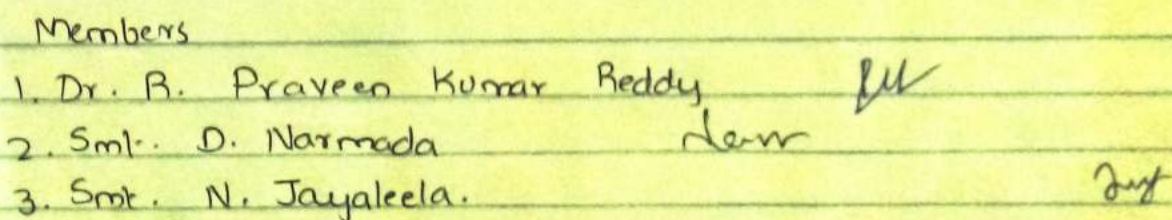 Members
1. Dr. R. Praveen Kumar Reddy
2. Smt. D. Narmada
3. Smt. N. Jayaleela.